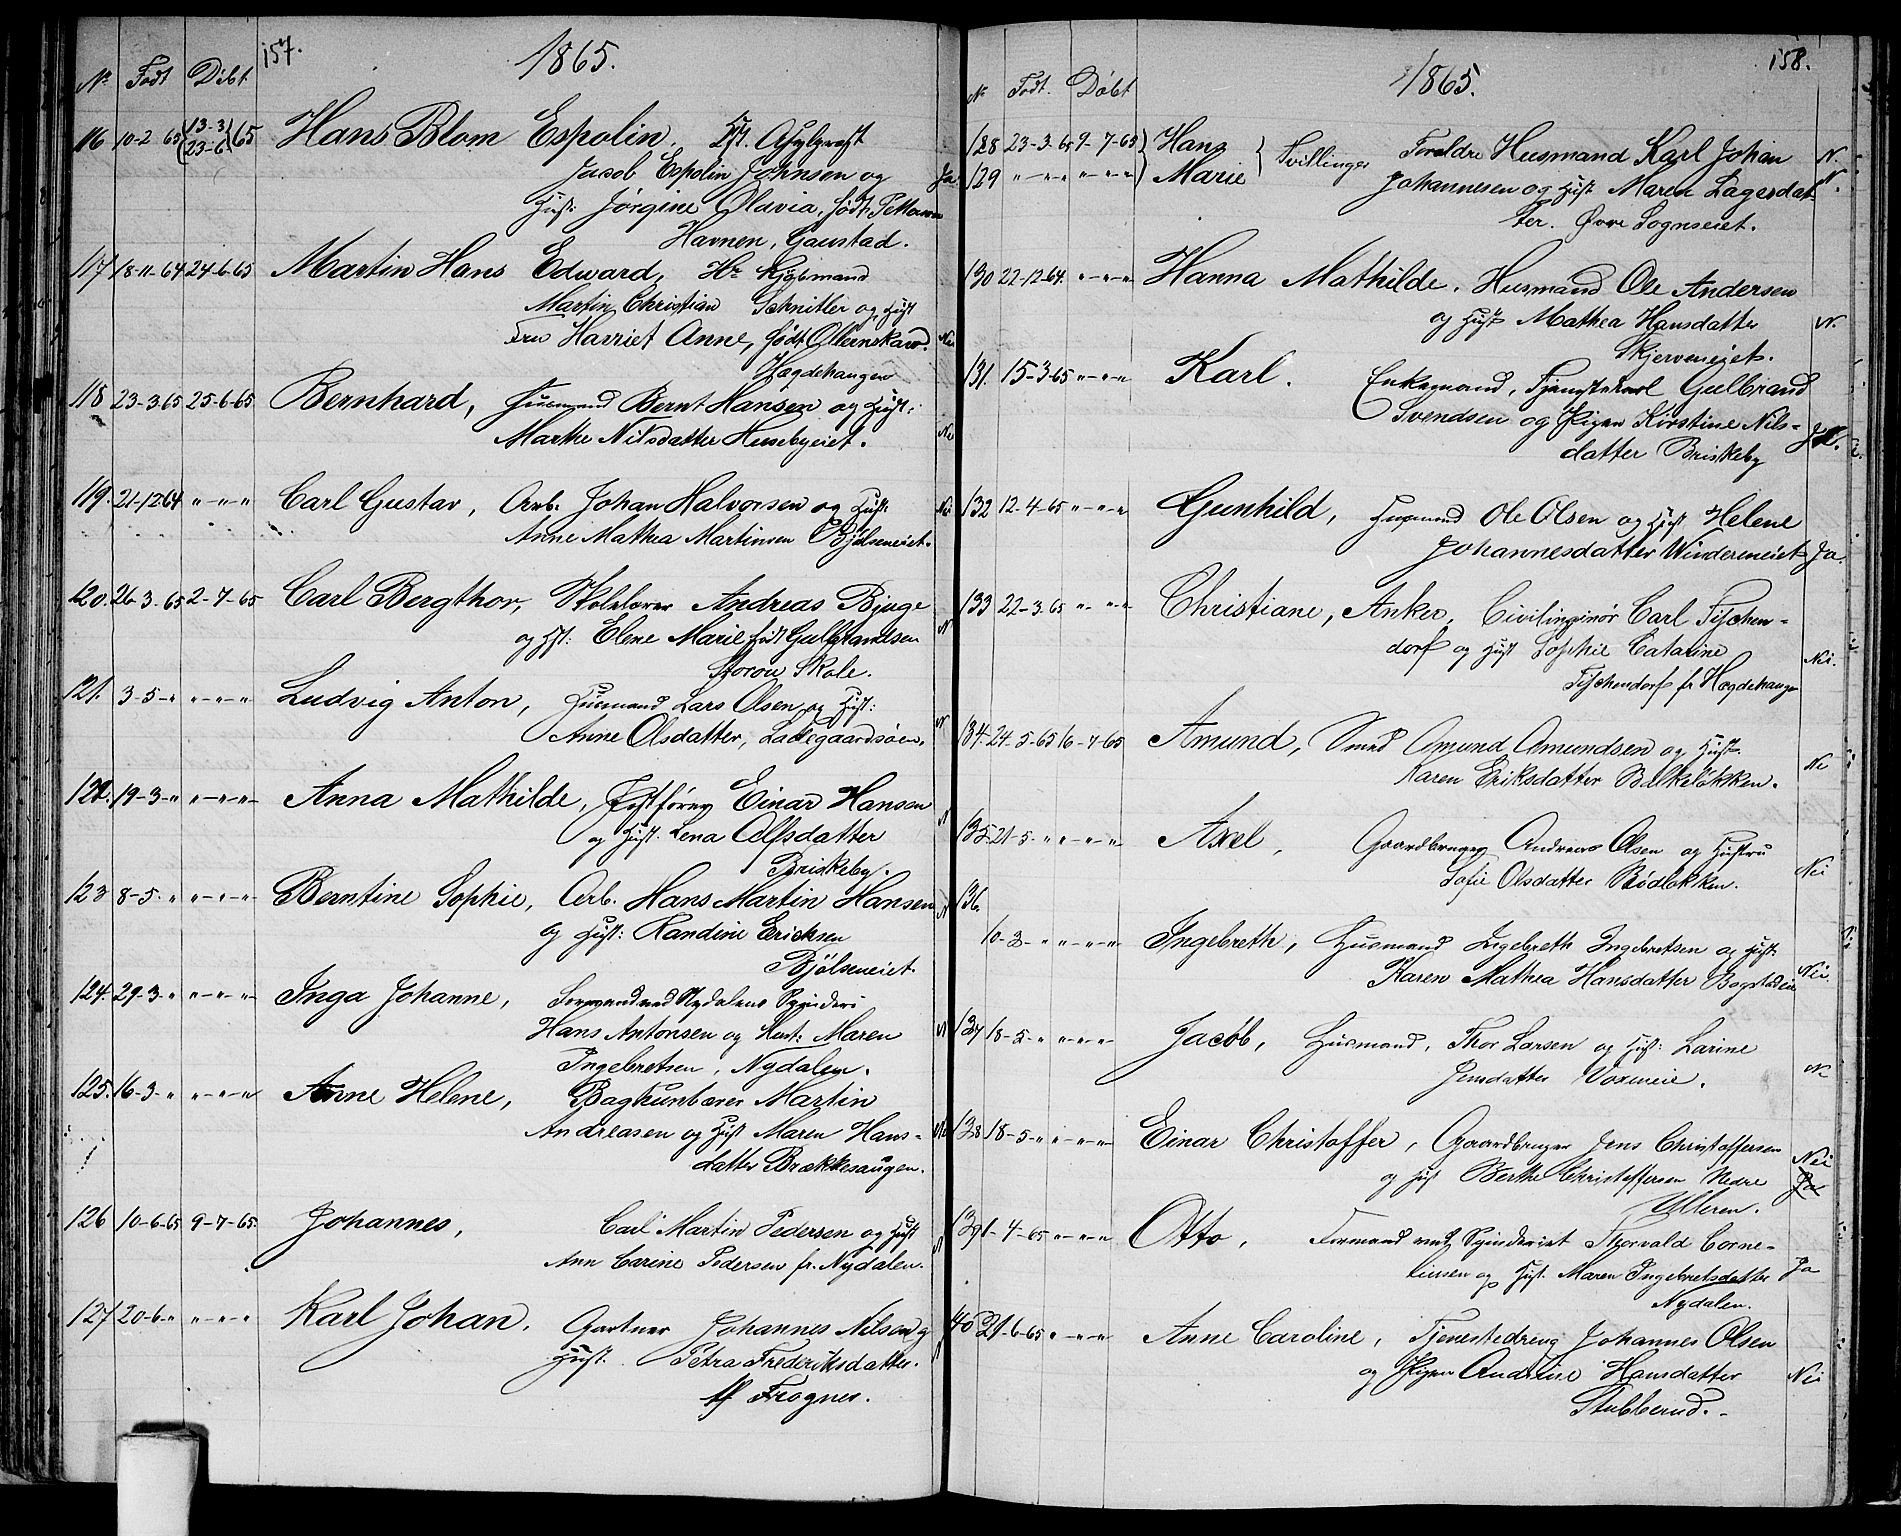 157.
1865.
No Født Døbt
116 10-2 65 {13-3 23-6} 65 Hans Blom Espolin,
Jacob Espolin Johnsen og
Hust: Jørgine Olavia, født Pettersen
Havnen, Gaustad. Ja
117 18-11-64 24-6-65 Martin Hans Edward, Hr Kjøbmand
Martin Christian Schnitler og Hust
Fru Harriet Anne, født
Hægdehaugen Nei
118 23-3-65 25-6-65 Bernhard, Husmand Bernt Hansen og Hust:
Marthe Nilsdatter Husebyeiet. Nei
119. 21-12-64 " " " Carl Gustav, Arb. Johan Halvorsen og Hust:
Anne Mathea Martinsen Bjølseneiet. Nei
120. 26-3-65 2-7-65 Carl Bergthor, Skolelærer Andreas Bjuge
og Hst: Elene Marie født Gulbrandsen
Storøu Skole. N
121. 3-5-" " " " Ludvig Anton, Husmand Lars Olsen og Hust:
Anne Olsdatter, Ladegaardsøen. N
122. 19-3-" "-"-" Anna Mathilde, Postfører Einar Hansen
og Hust: Lena Alfsdatter
Briskeby. N
123 8-5-" "-"-" Berntine Sophie, Arb. Hans Martin Hansen
og Hust: Randine Ericksen
Bjølseneiet N
124. 29-3-" "-"-" Inga Johanne, Formand ved Nydalens Spinderi
Hans Antonsen og Hust: Maren
Ingebretsen, Nydalen. N
125. 16-3-" "-"-" Anne Helene, Martin
Andreasen og Hust Maren Hans-
datter Brækkesaugen. Nei
126 10-6-65 9-7-65 Johannes, Carl Martin Pedersen og Hust
Ann Carine Pedersen fr. Nydalen. N
127 20-6-" " " " Karl Johan, Gartner Johannes Nilsen og
Hust: Petra Frederiksdatter.
Frogner.
158.
1865.
No Født. Døbt
128 23-3-65 9-7-65 } Hans } Tvillinger Foreldre Husmand Karl Johan N.
129 "-"-" "-"-" } Marie } Johannesen og Hust Maren Lagesdat- N.
ter. Øvre Sognseiet.
130 22-12-64. "-"-" Hanna Mathilde. Husmand Ole Andersen
og Hust Mathea Hansdatter N.
Skjerveneiet.
131. 15-3-65 "-"-" Karl. Enkemand, Tjenstekarl Gulbrand
Svendsen og Pigen Kirstine Nils-
datter Briskeby
132 12-4-65 "-"-" Gunhild, Husmand Ole Olsen og Hust Helene
Johannesdatter Winderneiet Ja.
133 22-3-65 "-"-" Christiane, Anker, Civilinginør Carl Fischen-
dorf og Hust Sophie Catarine Nei.
Fischendorf fr Hægdehaugen
134. 24-5-65 16-7-65 Amund, Smed Amund Amundsen og Hust.
Karen Eriksdatter Bakkeløkken. Nei
135. 21-5-" "-"-" Axel, Gaardbruger Andreas Olsen og Hustru
Sofie Olsdatter Rødløkken. Nei
136.
10-3-" "-"-" Ingebreth, Husmand Ingebreth Ingebretsen og Hust
Karen Mathea Hansdatter Bogstadeie Nei.
137 18-5-" "-"-" Jacob, Husmand, Thor Larsen og Hust: Larine
Jensdatter Voxeneie. N
138 18-5-" "-"-" Einar Christoffer, Gaardbruger Jens Christoffersen
og Hust Berthe Christoffersen Nedre Nei Ja
Ulleren.
139 1-4-65 "-"-" Otto, Formand ved Spinderiet Thorvald Corne-
liusen og Hust. Maren Ingebretsdatter Ja
Nydalen.
140 21-6-65 "-"-" Anne Caroline, Tjenestedreng Johannes Olsen
og Pigen Andrine Hansdatter Nei
Stubberud.